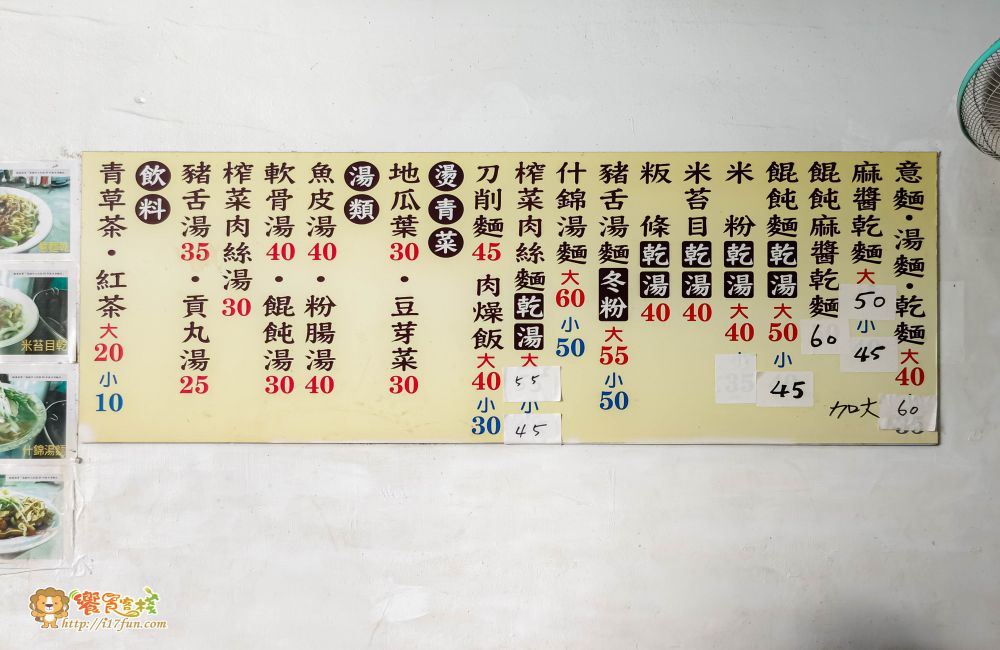 意麵·湯麵·乾麵 大40
加大 60
麻醬乾麵 大50 小45
餛飩麻醬乾麵 60
餛飩麵 乾湯 大50 小45
米粉 乾湯 大40
米苔目 乾湯 40
粄條 乾湯 40
豬舌湯麵 冬粉 大55 小50
什錦湯麵 大60 小50
榨菜肉絲麵 乾湯 大55 小45
刀削麵45 肉燥飯 大40 小30
燙青菜
地瓜葉30·豆芽菜30
湯類
魚皮湯40·粉腸湯40
軟骨湯40·餛飩湯30
榨菜肉絲湯30
豬舌湯35·貢丸湯25
飲料
青草茶·紅茶 大20 小10
米苔目乾
什錦湯麵
饗買客棧
http://i17fun.com/